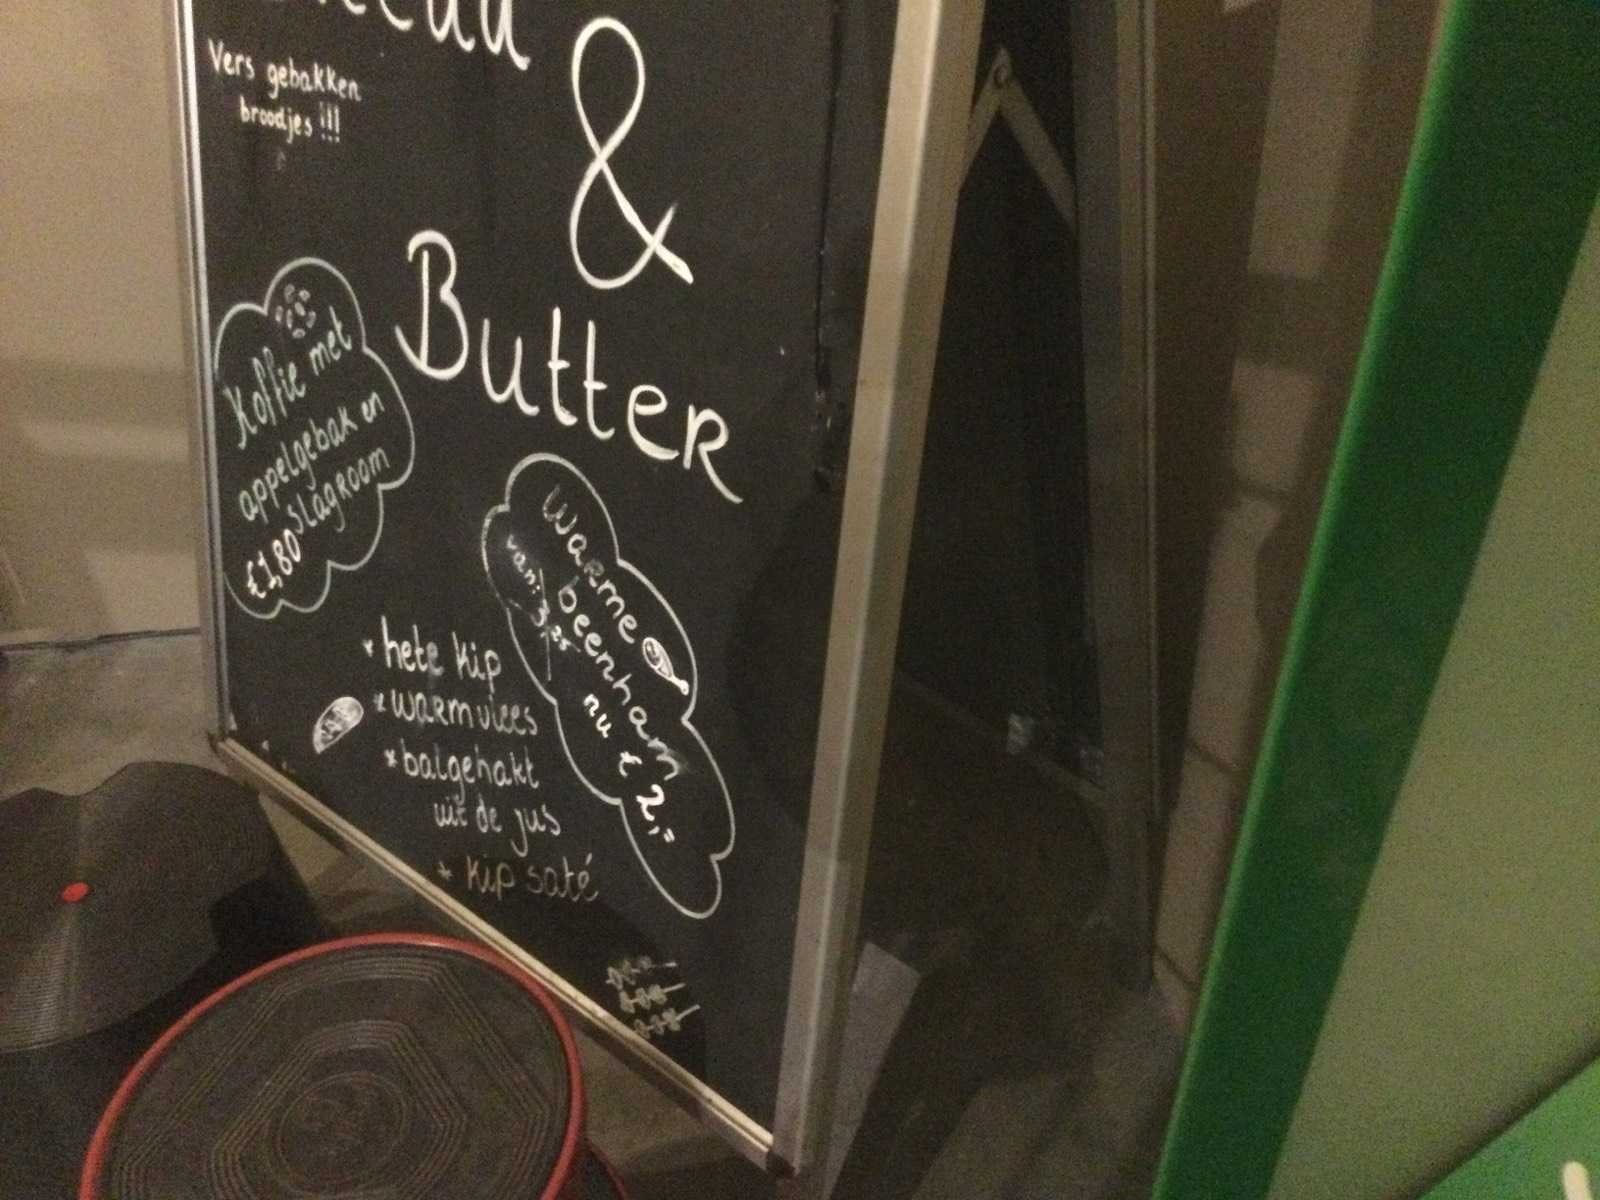 &
Vers gebakken
broodjes !!!
Butter
Koffie met
appelgebak en
slagroom
€1,80
Warme
beenham
van:
nu € 2,=
* hete kip
* warmvlees
* balgehakt
uit de jus
* kip saté